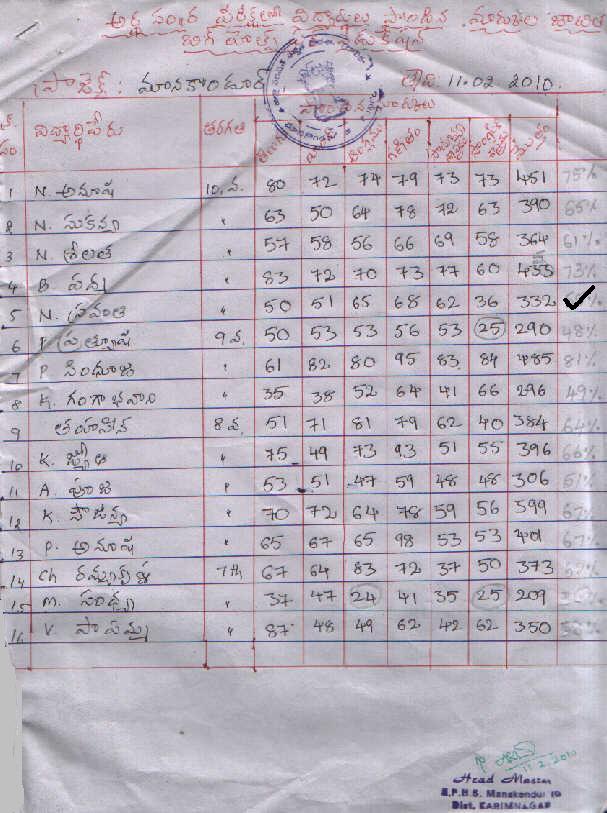 అర్ధ సంవత్సర పరీక్షలలో విద్యార్థులు సాధించిన మార్కుల జాబితా
తేది: 11.02 2010.
విద్యార్థి పేరు తరగతి గణితం
1 N. అనూష 10.వ. 80 72 74 79 73 73 451 75%
2 N. సుకన్య " 63 50 64 78 72 63 390 65%
3 N. శ్రీలత " 57 58 56 66 69 58 364 61%
4 B. " 83 72 70 73 77 60 433 73%
5 N. " 50 51 65 68 62 36 332
6 9 వ. 50 53 53 56 53 25 290 48%
7 P. సింధూజ " 61 82 80 95 83 84 485 81%
8 K. గంగాభవాని " 35 38 52 64 41 66 296 49%
9 తహసీన 8 వ. 51 71 81 79 62 40 384 64%
10 K. " 75 49 73 93 51 55 396 66%
11 A. పూజ " 53 51 47 59 48 48 306 51%
12 K. సౌజన్య " 70 72 64 78 59 56 399 67%
13 P. అనూష " 65 67 65 98 53 53 401 67%
14 Ch 7th 67 64 83 72 37 50 373 62%
15 M. సంధ్య " 37 47 24 41 35 25 209
16 V. " 87 48 49 62 42 62 350
11.2.2010
Head Master
Z.P.H.S. Manakondur
Dist. KARIMNAGAR